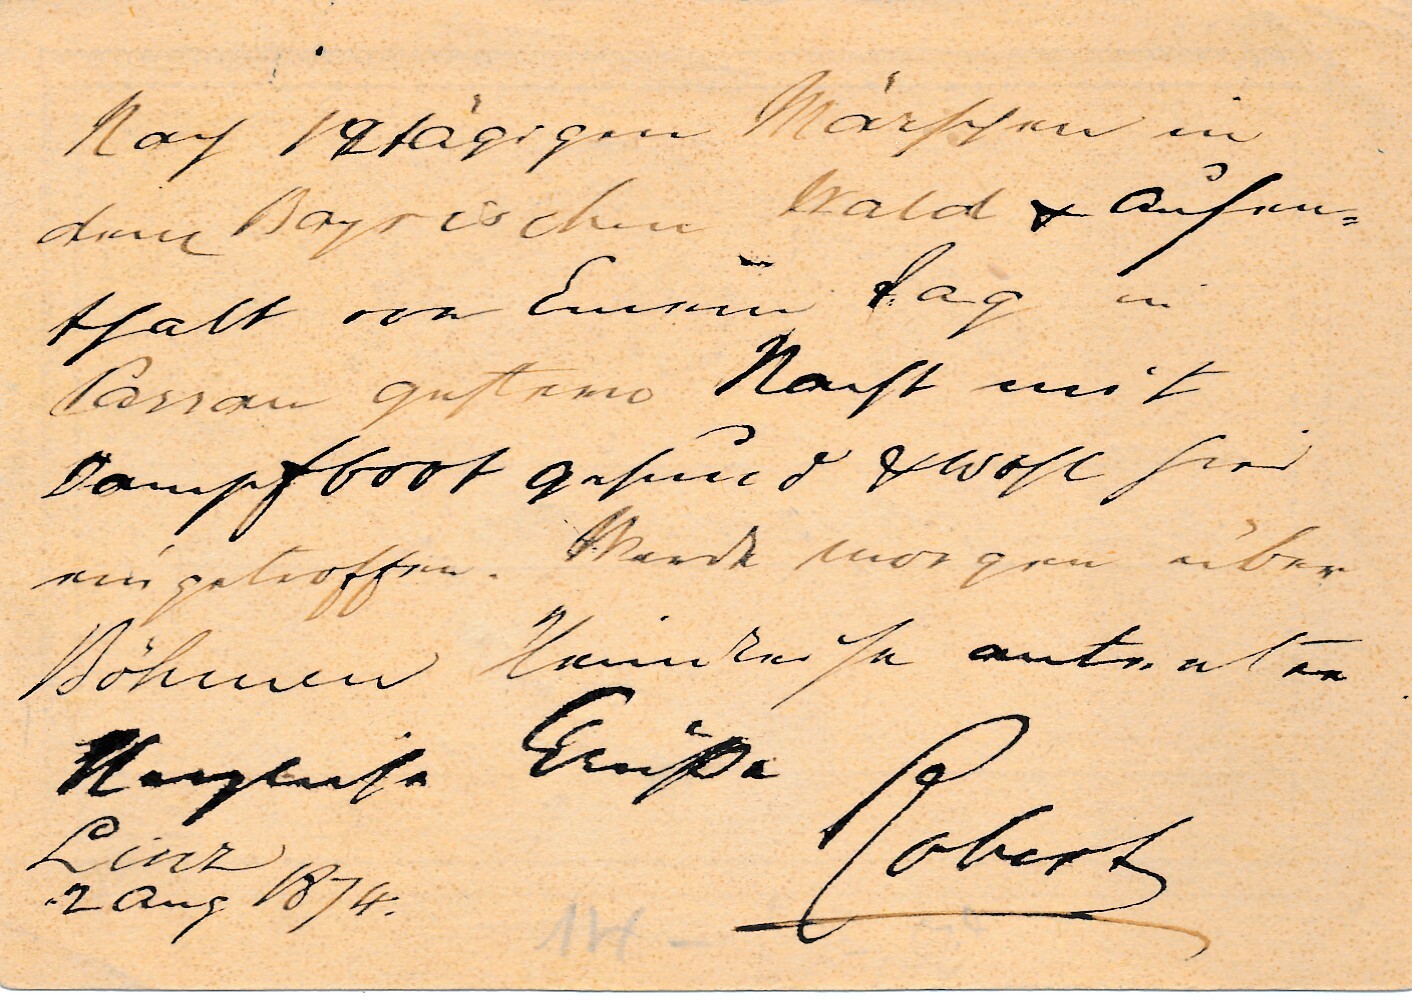 Nach 12tägigen Märschen in
dem Bayrischen Wald & Aufen=
thalt von Einem Tag in
Passau gestern Nacht mit
Dampfboot gesund & wohl hier
eingetroffen. Werde morgen über
Böhmen Heimreise antreten
Grüße
Robert
Linz
2 Aug 1874.